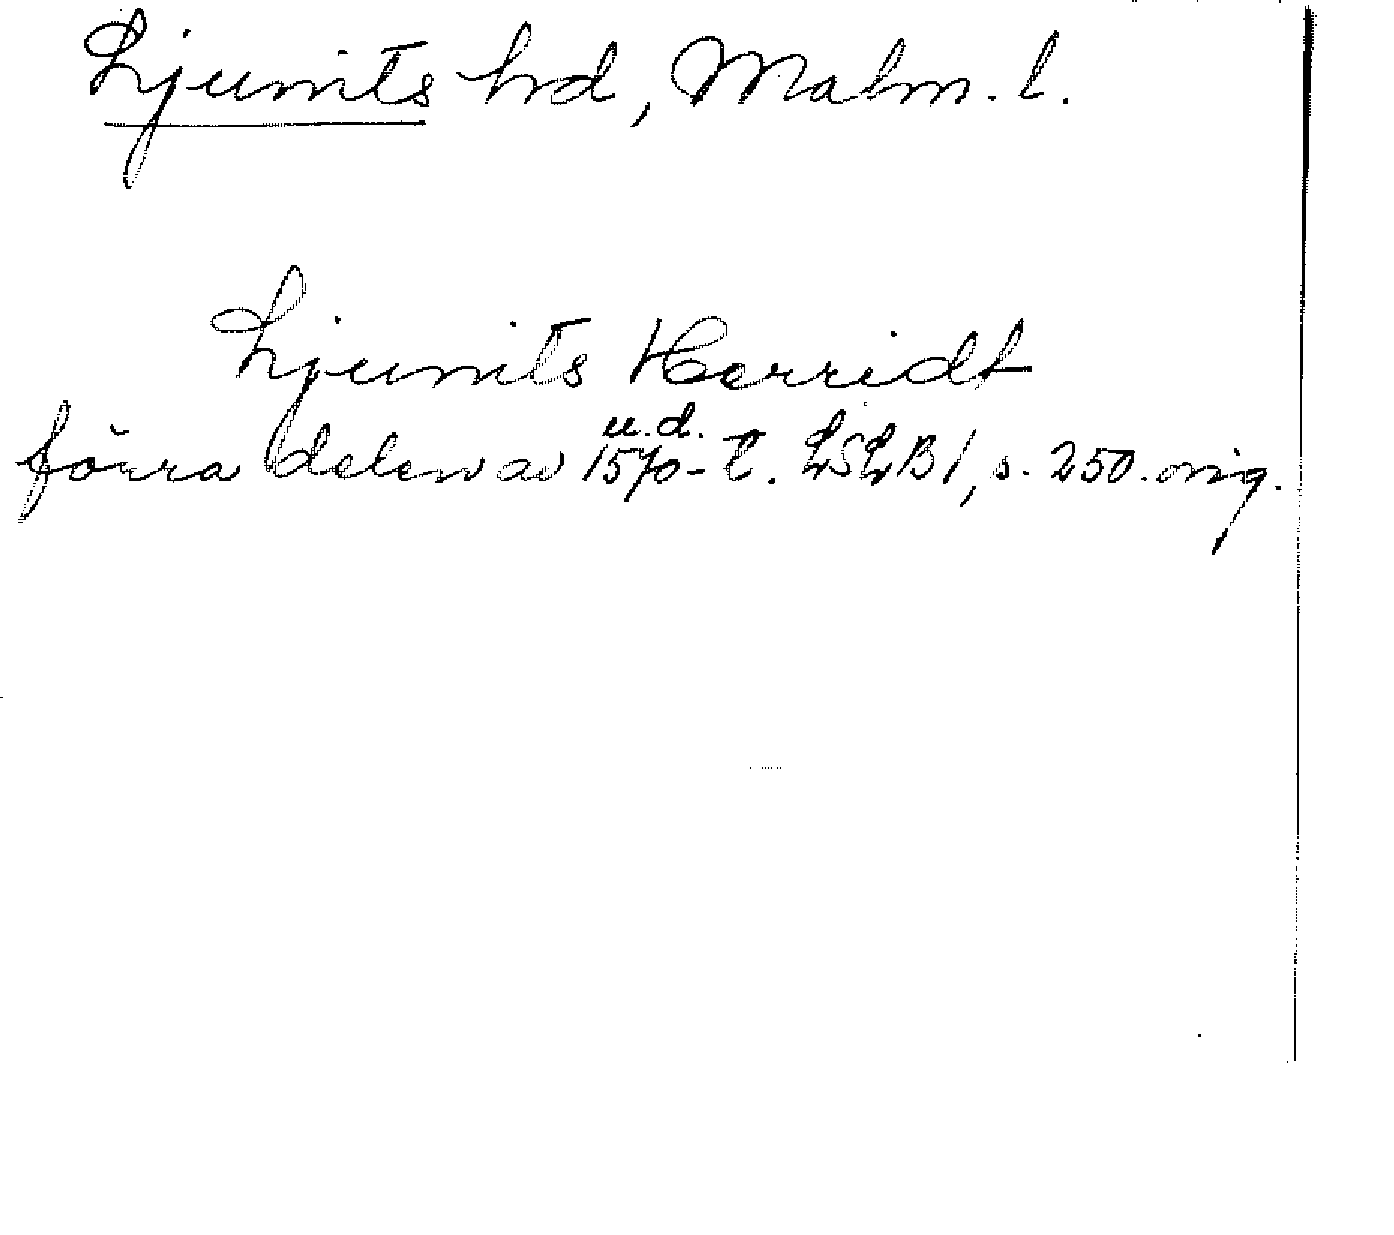 Ljunits hrd, Malm. l.
Ljunits Herridt
u.d.
förra delen av 1570-t. LSLB1, s. 250. orig.